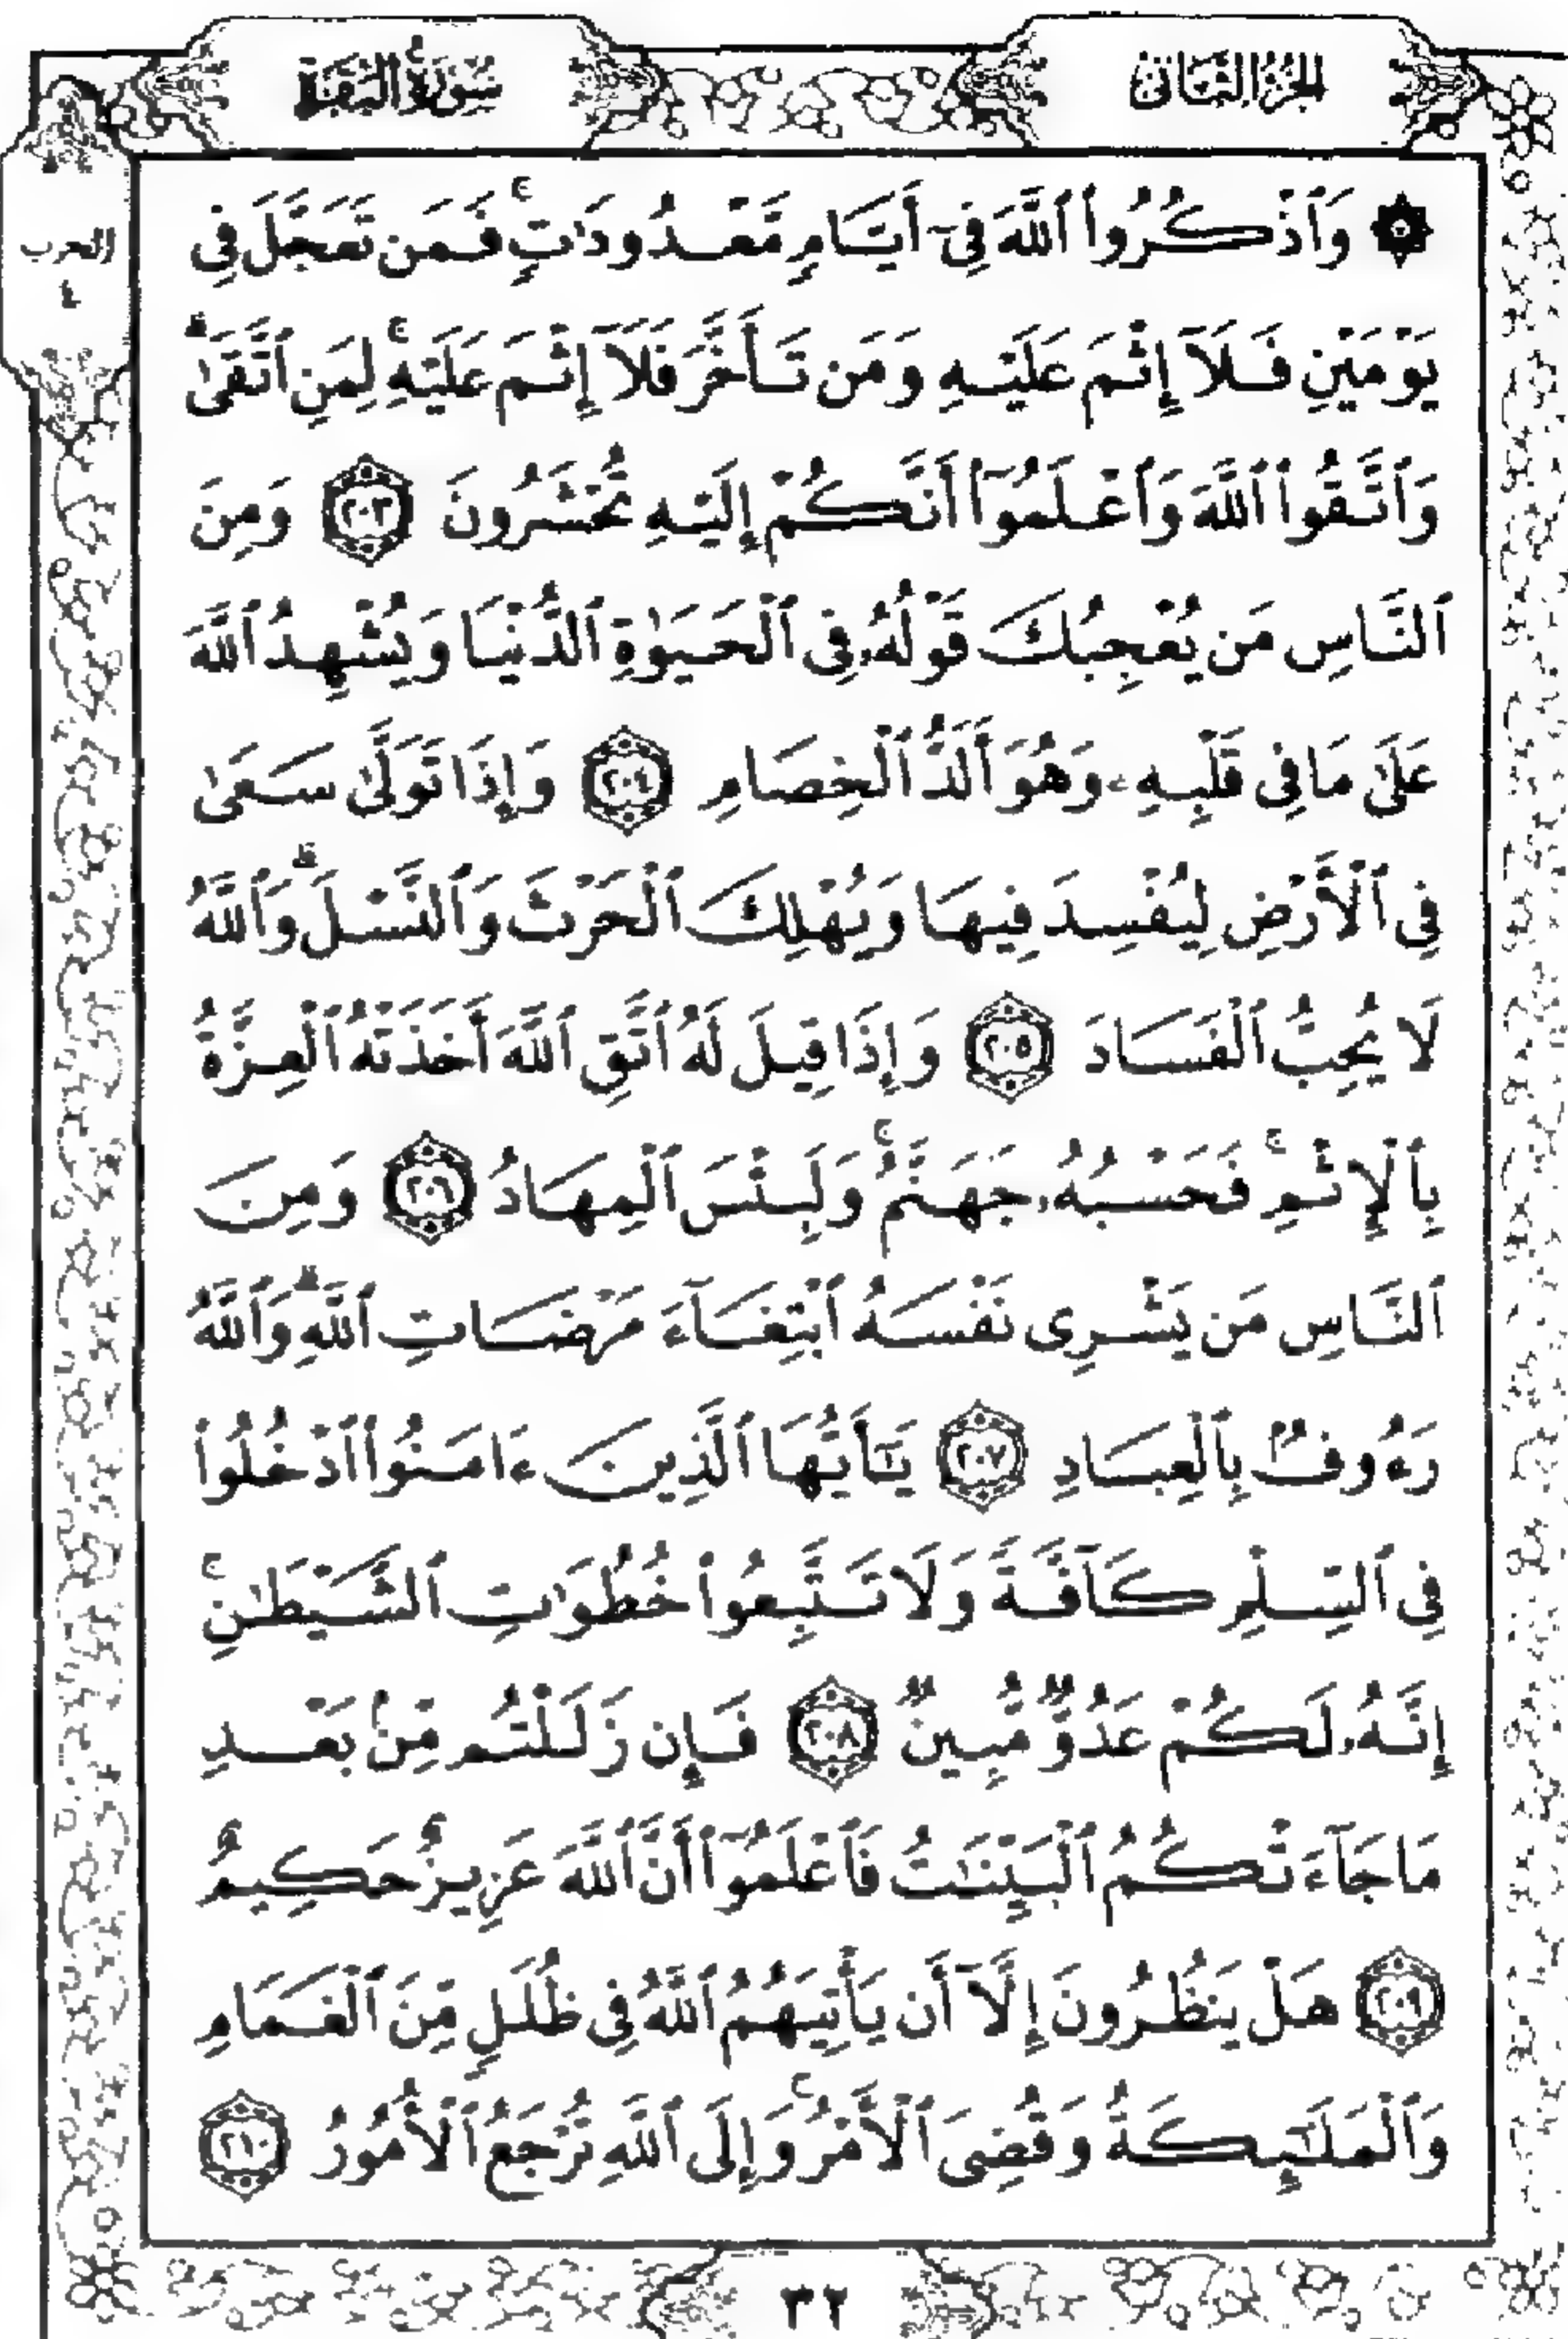 سُورَةُ البَقَرَة
الجُزْءُ الثَّانِي
الحزب
٤
۞ وَٱذْكُرُوا۟ ٱللَّهَ فِىٓ أَيَّامٍ مَّعْدُودَٰتٍ ۚ فَمَن تَعَجَّلَ فِى
يَوْمَيْنِ فَلَآ إِثْمَ عَلَيْهِ وَمَن تَأَخَّرَ فَلَآ إِثْمَ عَلَيْهِ ۚ لِمَنِ ٱتَّقَىٰ ۗ
وَٱتَّقُوا۟ ٱللَّهَ وَٱعْلَمُوٓا۟ أَنَّكُمْ إِلَيْهِ تُحْشَرُونَ ٢٠٣ وَمِنَ
ٱلنَّاسِ مَن يُعْجِبُكَ قَوْلُهُۥ فِى ٱلْحَيَوٰةِ ٱلدُّنْيَا وَيُشْهِدُ ٱللَّهَ
عَلَىٰ مَا فِى قَلْبِهِۦ وَهُوَ أَلَدُّ ٱلْخِصَامِ ٢٠٤ وَإِذَا تَوَلَّىٰ سَعَىٰ
فِى ٱلْأَرْضِ لِيُفْسِدَ فِيهَا وَيُهْلِكَ ٱلْحَرْثَ وَٱلنَّسْلَ ۗ وَٱللَّهُ
لَا يُحِبُّ ٱلْفَسَادَ ٢٠٥ وَإِذَا قِيلَ لَهُ ٱتَّقِ ٱللَّهَ أَخَذَتْهُ ٱلْعِزَّةُ
بِٱلْإِثْمِ ۚ فَحَسْبُهُۥ جَهَنَّمُ ۚ وَلَبِئْسَ ٱلْمِهَادُ ٢٠٦ وَمِنَ
ٱلنَّاسِ مَن يَشْرِى نَفْسَهُ ٱبْتِغَآءَ مَرْضَاتِ ٱللَّهِ ۗ وَٱللَّهُ
رَءُوفٌۢ بِٱلْعِبَادِ ٢٠٧ يَٰٓأَيُّهَا ٱلَّذِينَ ءَامَنُوا۟ ٱدْخُلُوا۟
فِى ٱلسِّلْمِ كَآفَّةً وَلَا تَتَّبِعُوا۟ خُطُوَٰتِ ٱلشَّيْطَٰنِ ۚ
إِنَّهُۥ لَكُمْ عَدُوٌّ مُّبِينٌ ٢٠٨ فَإِن زَلَلْتُم مِّنۢ بَعْدِ
مَا جَآءَتْكُمُ ٱلْبَيِّنَٰتُ فَٱعْلَمُوٓا۟ أَنَّ ٱللَّهَ عَزِيزٌ حَكِيمٌ
٢٠٩ هَلْ يَنظُرُونَ إِلَّآ أَن يَأْتِيَهُمُ ٱللَّهُ فِى ظُلَلٍ مِّنَ ٱلْغَمَامِ
وَٱلْمَلَٰٓئِكَةُ وَقُضِىَ ٱلْأَمْرُ ۚ وَإِلَى ٱللَّهِ تُرْجَعُ ٱلْأُمُورُ ٢١٠
٣٢